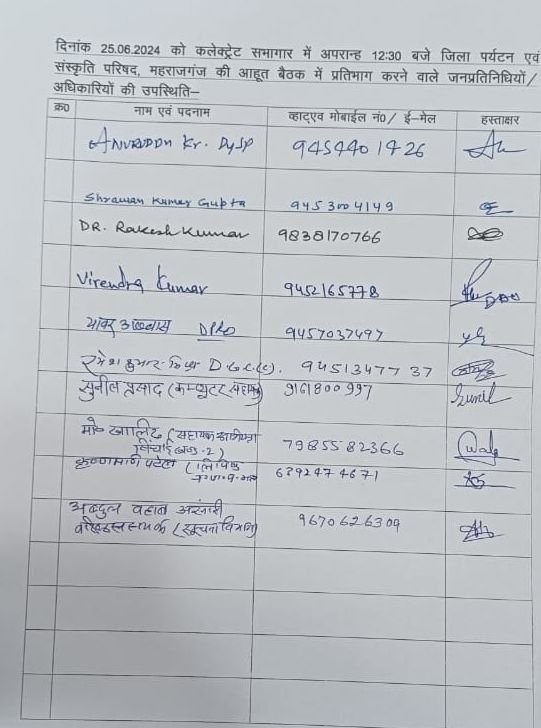 दिनांक 25.06.2024 को कलेक्ट्रेट सभागार में अपरान्ह 12:30 बजे जिला पर्यटन एवं
संस्कृति परिषद, महराजगंज की आहूत बैठक में प्रतिभाग करने वाले जनप्रतिनिधियों/
अधिकारियों की उपस्थिति–
क्र0 नाम एवं पदनाम व्हाट्एव मोबाईल नं0/ ई-मेल हस्ताक्षर
Kr. DySP 9454401426
Shrawan Kumar Gupta 9453004149
DR. Rakesh Kumar 9838170766
Virendra Kumar 9452165778
DPRO 9457037497
रमेश कुमार D G.C.(C). 9451347737
सुनील प्रसाद (कम्प्यूटर सहायक) 9161800997 Sunil
मो0 खालिद (सहायक 7985582366
सिंचाई खण्ड-2)
कृष्णमणि पटेल (लिपिक 6392474671
अब्दुल वहाब अंसारी 9670626309
वरिष्ठ सहायक (सूचना विभाग)